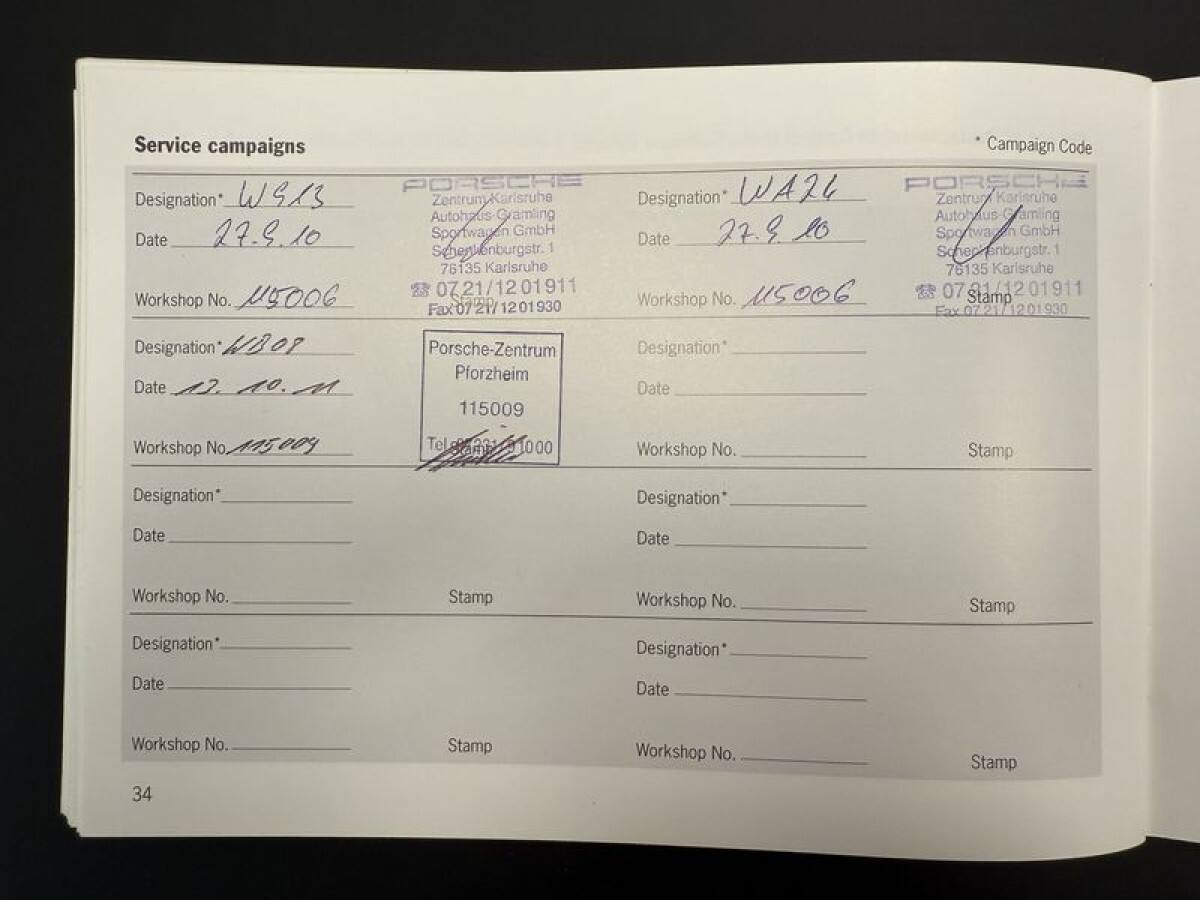 Service campaigns
* Campaign Code
Designation* WG13
Date 27.9.10
Workshop No. 115006
PORSCHE
Zentrum Karlsruhe
Autohaus Gramling
Sportwagen GmbH
Schenkenburgstr. 1
76135 Karlsruhe
☎ 07 21 / 12 01 911
Stamp
Fax 07 21 / 12 01 930
Designation* WA24
Date 27.9.10
Workshop No. 115006
PORSCHE
Zentrum Karlsruhe
Autohaus Gramling
Sportwagen GmbH
Schenkenburgstr. 1
76135 Karlsruhe
☎ 07 21 / 12 01 911
Stamp
Fax 07 21 / 12 01 930
Designation* WB08
Date 13.10.11
Workshop No. 115009
Porsche-Zentrum
Pforzheim
115009
Tel
Stamp
Designation*
Date
Workshop No.
Stamp
Designation*
Date
Workshop No.
Stamp
Designation*
Date
Workshop No.
Stamp
Designation*
Date
Workshop No.
Stamp
Designation*
Date
Workshop No.
Stamp
34